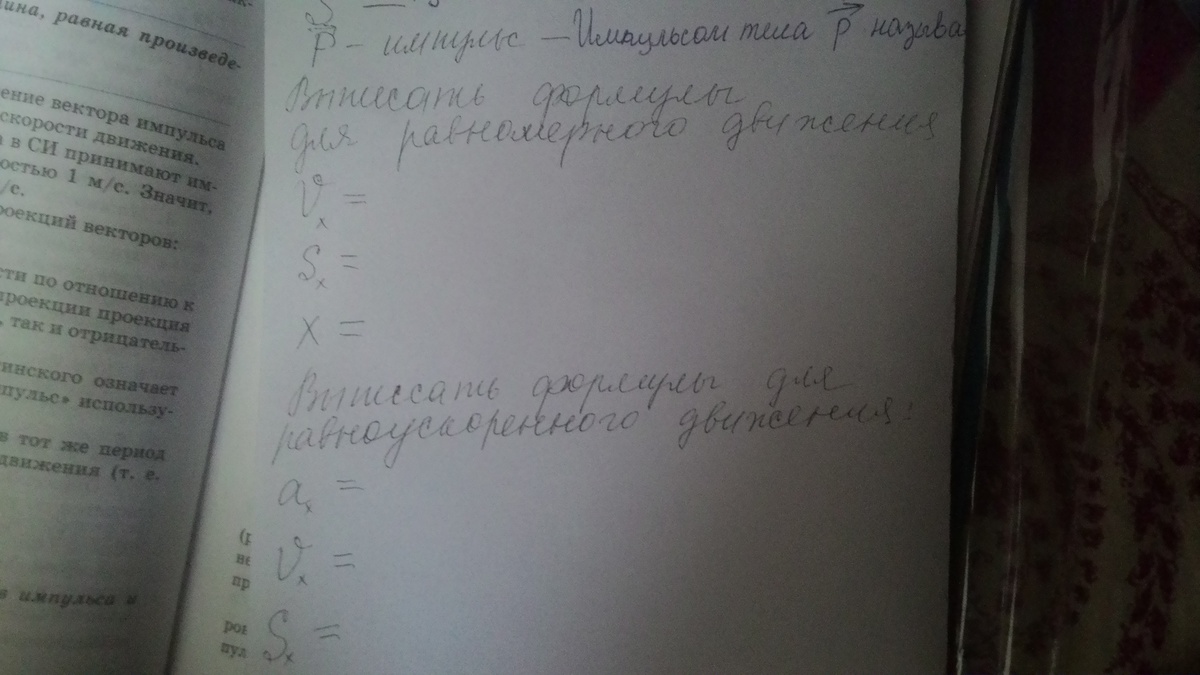 ина, равная произведе-
ение вектора импульса
скорости движения.
в СИ принимают им-
остью 1 м/с. Значит,
/с.
роекций векторов:
сти по отношению к
проекции проекция
, так и отрицатель-
инского означает
пульс» использу-
в тот же период
движения (т. е.
в импульса и
p⃗ - импульс — Импульсом тела p⃗ называ
Выписать формулы
для равномерного движения
Vₓ =
Sₓ =
x =
Выписать формулы для
равноускоренного движения:
aₓ =
Vₓ =
Sₓ =
(р
не
пр
ров
пул